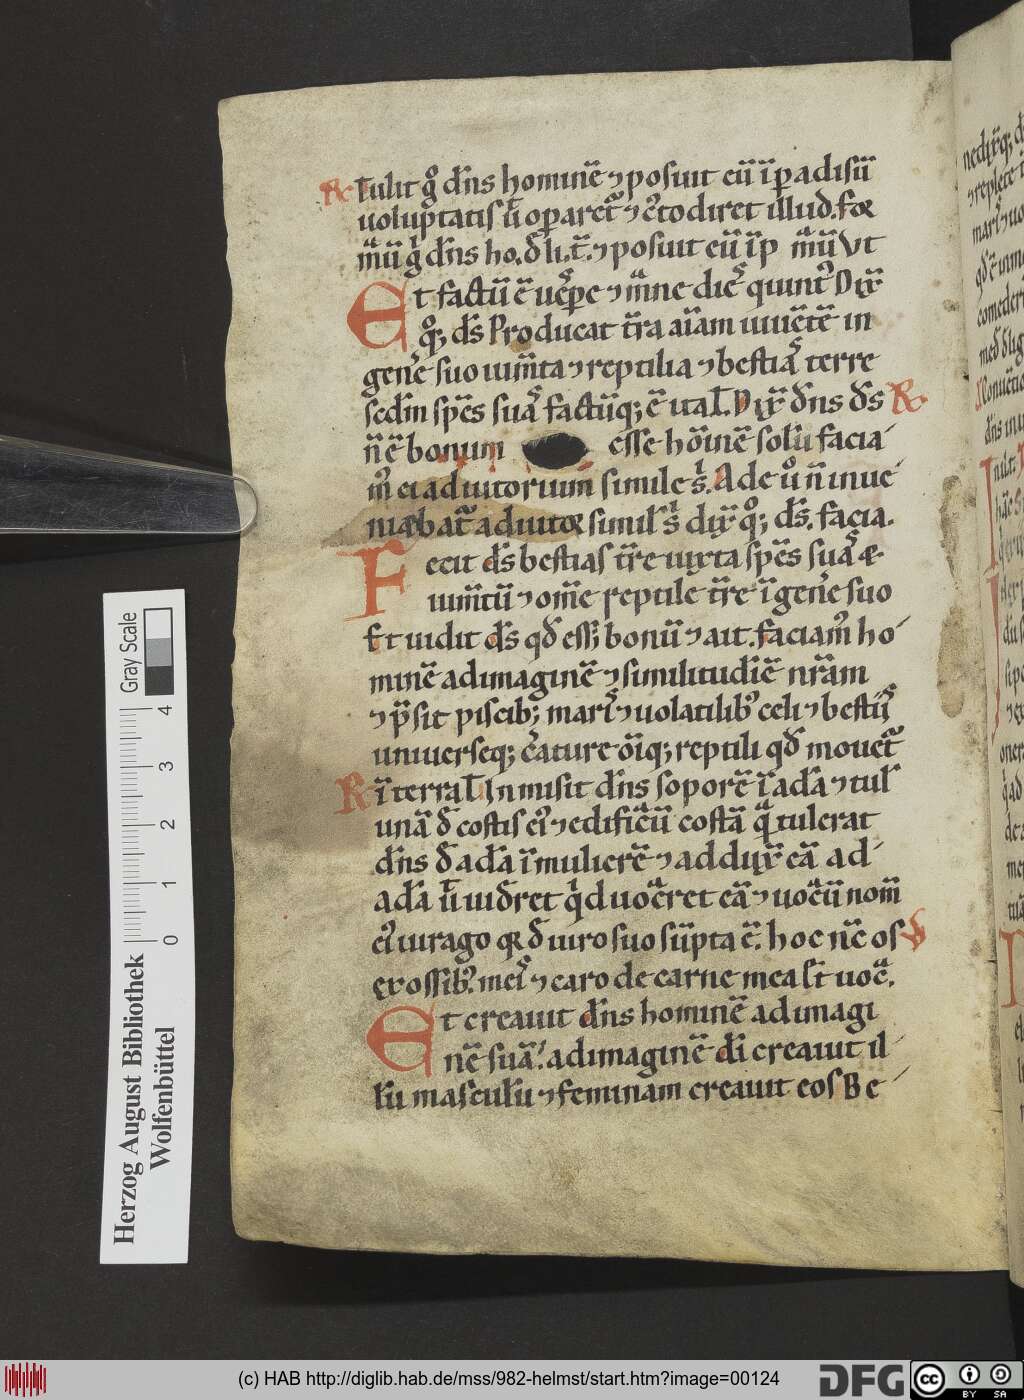 R Tulit gͦ dn̄s hominē ⁊ posuit cū ī paradisū
uoluptatis ū opareť ⁊ c̾todiret illud. for
maū g̾ dn̄s ho. đ li. t̄. ⁊ posuit eū ī p maū Vt
Et factū ē uespe ⁊ mane dies quint᾽ Dix̄
qͦꝫ ds̄ Producat tr̄a aīam uiuētē in
gene suo iumta ⁊ reptilia ⁊ bestias terre
scdm spēs suas factūqꝫ ē ita Dix̄ dn̄s ds̄ R
n̄ ē bonum esse hoīnē solū facia
m᾽ ei adiutorium simile s. Ade u̾ n̄ inue
niebať adiutor simil᾽ s dix̄ qͦꝫ ds̄. facia.
Fecit ds̄ bestias tr̄e iuxta spēs suas &
iumtū ⁊ om̄e reptile tr̄e ī gene suo
Et uidit ds̄ qđ essꝫ bonū ⁊ ait. faciam᾽ ho
minē ad imaginē ⁊ similitudīē nr̄am
⁊ p̄sit piscibꝫ maris ⁊ uolatilib᾽ celi ⁊ bestiis
uniuerseqꝫ creature oīqꝫ reptili qđ moueť
R ī terra In misit dn̄s soporē ī adā ⁊ tul᾽
unā đ costis ei᾽ ⁊ edificaū costā quā tulerat
dn̄s đ adā ī mulierē ⁊ addux̄ eā ad
adā ū uiđret quid uocaret eā ⁊ uocaū nom̄
ei᾽ uirago qr đ uiro suo sūpta ē. hoc nc̄ os V
ex ossib᾽. meis ⁊ caro de carne mea et uoca.
Et creauit dn̄s hominē ad imagi
nē suā. ad imaginē di creauit il
lū masculū ⁊ feminam creauit eos Be
Gray Scale
0 1 2 3 4
Herzog August Bibliothek
Wolfenbüttel
(c) HAB http://diglib.hab.de/mss/982-helmst/start.htm?image=00124
DFG
cc BY SA